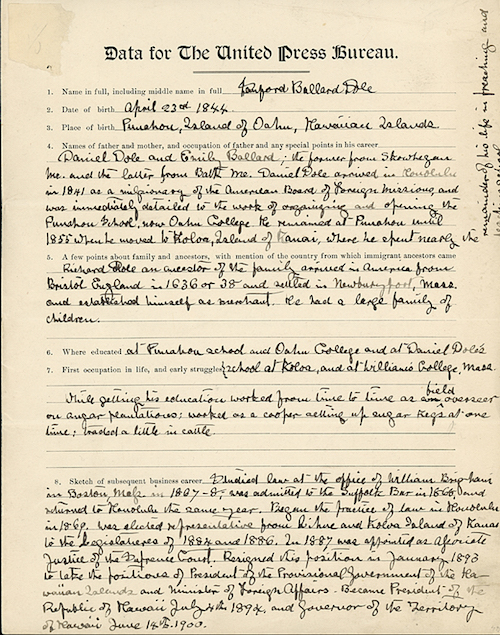 Data for The United Press Bureau.
1. Name in full, including middle name in full Sanford Ballard Dole
2. Date of birth April 23d 1844.
3. Place of birth Punahou, Island of Oahu, Hawaiian Islands
4. Names of father and mother, and occupation of father and any special points in his career
Daniel Dole and Emily Ballard; the former from Skowhegan
Me. and the latter from Bath Me. Daniel Dole arrived in Honolulu
in 1841 as a missionary of the American Board of Foreign Missions, and
was immediately detailed to the work of organizing and opening the
Punahou School, now Oahu College. He remained at Punahou until
1855 when he moved to Koloa, Island of Kauai, where he spent nearly the
remainder of his life in preaching and
5. A few points about family and ancestors, with mention of the country from which immigrant ancestors came
Richard Dole an ancestor of the family arrived in America from
Bristol England in 1636 or 38 and settled in Newburyport, Mass.
and established himself as merchant. He had a large family of
children.
6. Where educated at Punahou school and Oahu College and at Daniel Dole's
7. First occupation in life, and early struggles school at Koloa, and at Williams College, Mass
While getting his education worked from time to time as field overseer
on sugar plantations; worked as a cooper setting up sugar kegs at one
time; traded a little in cattle.
8. Sketch of subsequent business career Studied law at the office of William Brigham
in Boston, Mass in 1867-8. was admitted to the Suffolk Bar in 1868, and
returned to Honolulu the same year. Began the practice of law in Honolulu
in 1869. Was elected representative from Lihue and Koloa Island of Kauai
to the Legislatures of 1884 and 1886. In 1887 was appointed as Associate
Justice of the Supreme Court. Resigned this position in January 1893
to take the positions of President of the Provisional Government of the Ha-
waiian Islands and Minister of Foreign Affairs. Became President of the
Republic of Hawaii July 4th 1894, and Governor of the Territory
of Hawaii June 14th 1900.